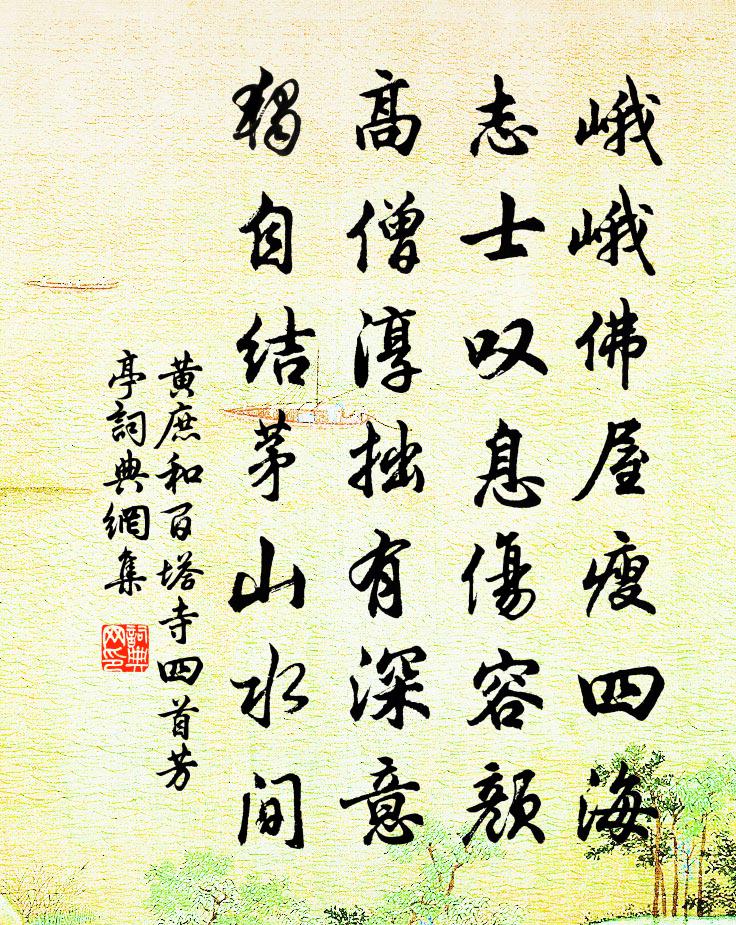 峨峨佛屋瘦四海
志士叹息傷容顏
高僧淳拙有深意
獨自结茅山水间
黄庶和百塔寺四首芳
亭詞典網集
詞典
网印